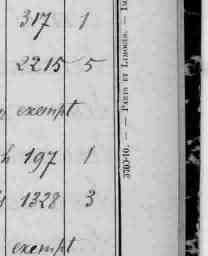 317 1
2215 5
exempt
197 1
1328 3
exempt
370-10. — PARIS ET LIMOGES. — IM